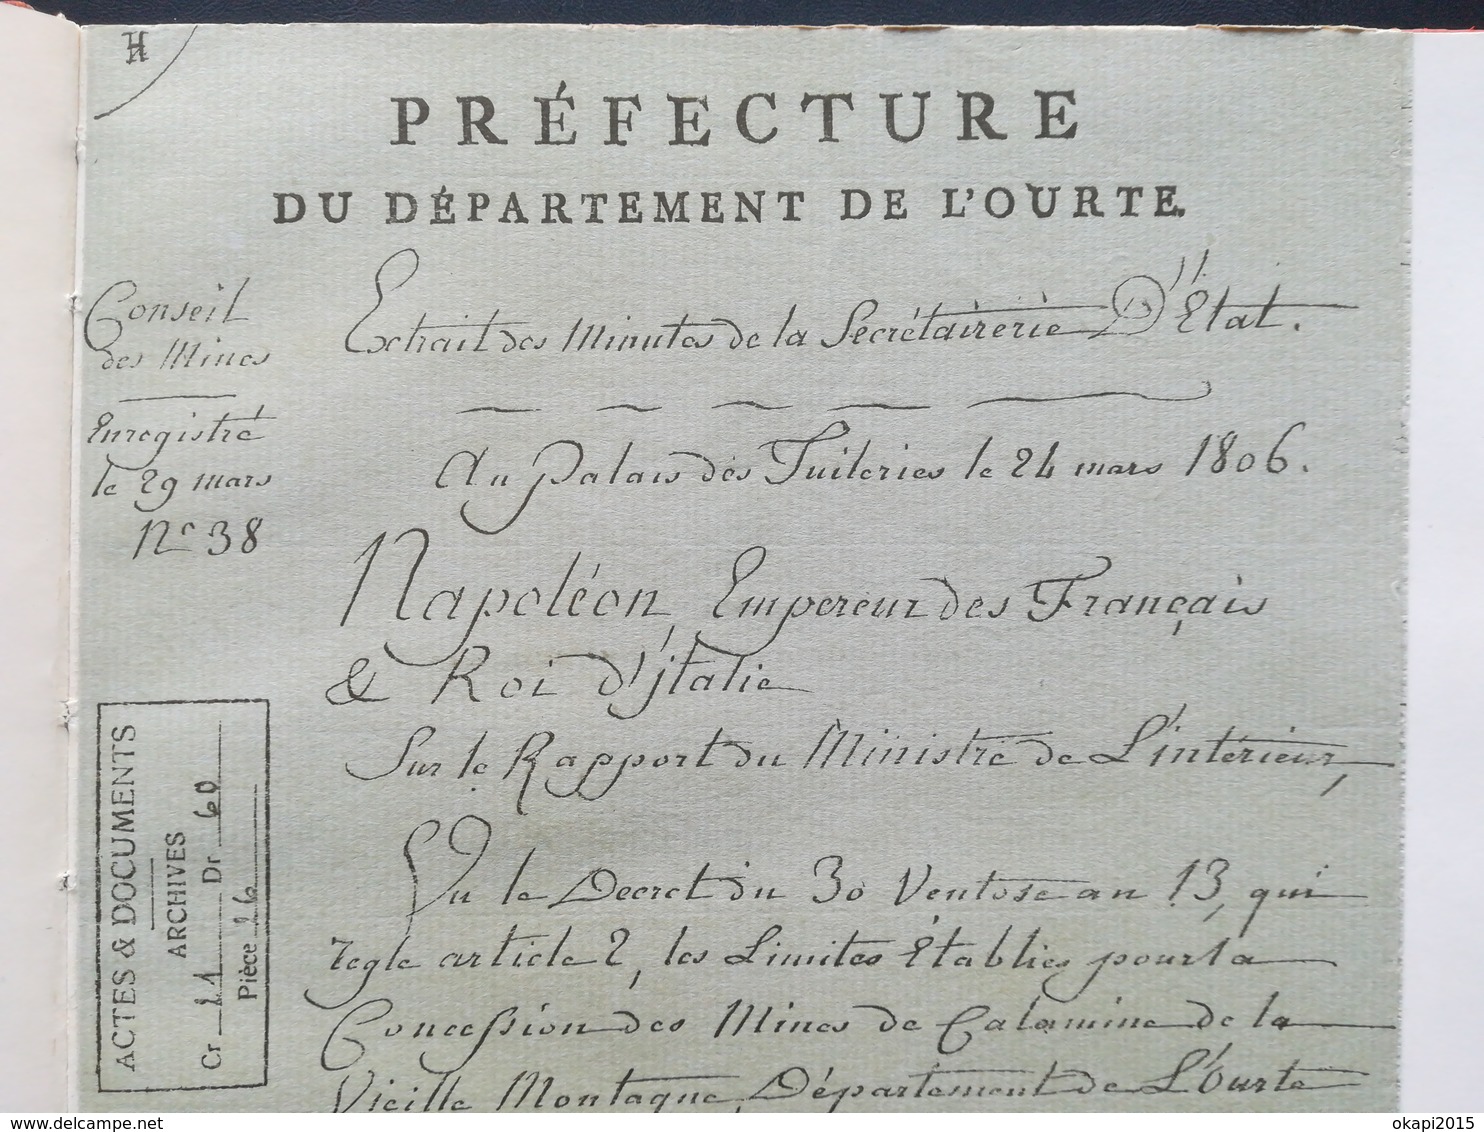 H
PRÉFECTURE
DU DÉPARTEMENT DE L'OURTE.
Conseil
des Mines
Enregistré
le 29 mars
N° 38
Extrait des Minutes de la Secrétairerie D'Etat.
Au Palais des Tuileries le 24 mars 1806.
Napoléon, Empereur des Français
& Roi d'jtalie
Sur le Rapport du Ministre de L'intérieur,
Vu le Decret du 30 Ventose an 13, qui
regle article 2, les Limites Etablies pour la
Concession des Mines de Calamine de la
Vieille Montagne, Département de L'Ourte
ACTES & DOCUMENTS
ARCHIVES
Cr 21 Dr 60
Pièce 26
delcampe.net
okapi2015